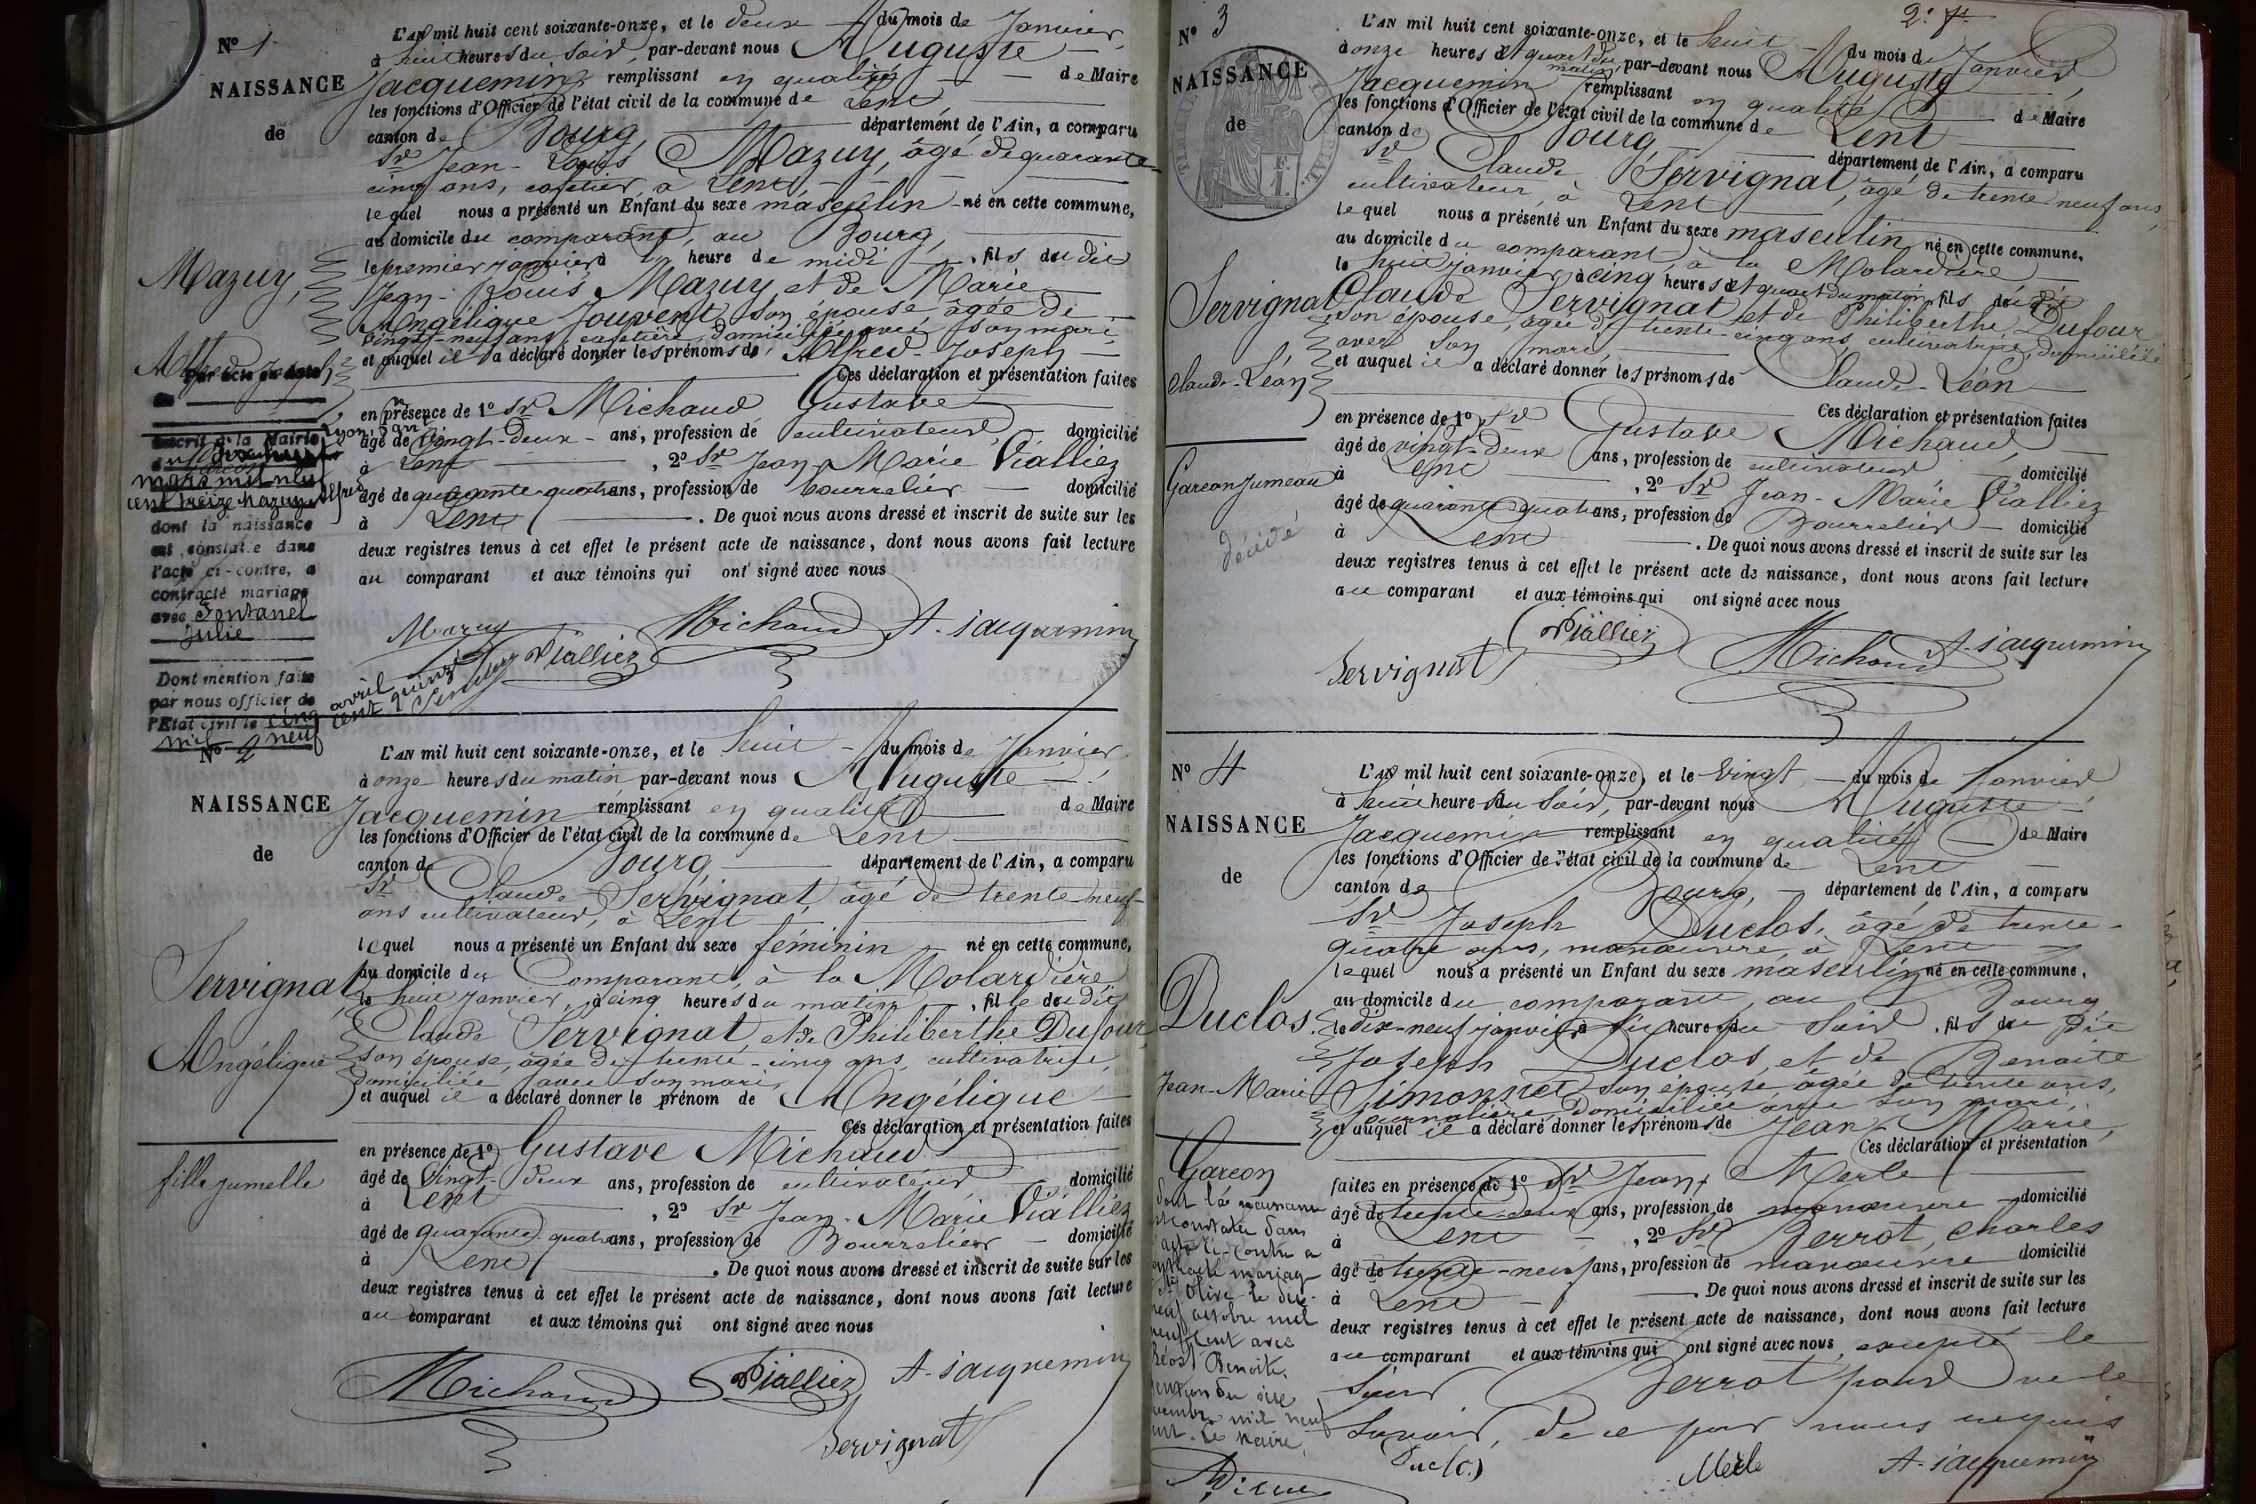 N° 1
NAISSANCE
de
Mazuy,
Alfred-Joseph
L'AN mil huit cent soixante-onze, et le deux du mois de Janvier,
à huit heures du soir, par-devant nous Auguste
Jacquemin remplissant en qualité de Maire
les fonctions d'Officier de l'état civil de la commune de Lent,
canton de Bourg, département de l'Ain, a comparu
Sr Jean-Louis Mazuy, âgé de quarante-
cinq ans, cafetier, à Lent
lequel nous a présenté un Enfant du sexe masculin né en cette commune,
au domicile du comparant, au Bourg,
le premier janvier à heure de midi, fils du dit
Jean-Louis Mazuy et de Marie
Angélique Jouvent son épouse, âgée de
vingt-neuf ans, cafetière, domiciliée avec son mari
et auquel il a déclaré donner les prénoms de Alfred-Joseph
Ces déclaration et présentation faites
en présence de 1° Sr Michaud Gustave
âgé de vingt-deux ans, profession de cultivateur, domicilié
à Lent, 2° Sr Jean-Marie Vialliez
âgé de quarante-quatre ans, profession de bourrelier domicilié
à Lent. De quoi nous avons dressé et inscrit de suite sur les
deux registres tenus à cet effet le présent acte de naissance, dont nous avons fait lecture
au comparant et aux témoins qui ont signé avec nous
Mazuy Vialliez Michaud A. Jacquemin
Par acte en date
du
inscrit à la Mairie
mars mil neuf
cent treize Mazuy Alfred
dont la naissance
est constatée dans
l'acte ci-contre, a
contracté mariage
avec Fontanel
Julie
Dont mention faite
par nous officier de
l'Etat civil le cinq
avril
mil neuf
cent quinze
N° 2
NAISSANCE
de
Servignat,
Angélique
fille jumelle
L'AN mil huit cent soixante-onze, et le huit du mois de Janvier,
à onze heures du matin par-devant nous Auguste
Jacquemin remplissant en qualité de Maire
les fonctions d'Officier de l'état civil de la commune de Lent
canton de Bourg département de l'Ain, a comparu
Sr Claude Servignat, âgé de trente-neuf
ans cultivateur, à Lent
lequel nous a présenté un Enfant du sexe féminin né en cette commune,
au domicile du Comparant, à la Molardière
le huit janvier, à cinq heures du matin, fille du dit
Claude Servignat, et de Philiberthe Dufour
son épouse, âgée de trente-cinq ans, cultivatrice,
domiciliée avec son mari,
et auquel il a déclaré donner le prénom de Angélique
Ces déclaration et présentation faites
en présence de 1° Gustave Michaud
âgé de vingt-deux ans, profession de cultivateur domicilié
à Lent, 2° Sr Jean-Marie Vialliez
âgé de quarante-quatre ans, profession de Bourrelier domicilié
à Lent. De quoi nous avons dressé et inscrit de suite sur les
deux registres tenus à cet effet le présent acte de naissance, dont nous avons fait lecture
au comparant et aux témoins qui ont signé avec nous
Michaud Vialliez A. Jacquemin
Servignat
2e ft
N° 3
NAISSANCE
de
Servignat
Claude-Léon
Garçon jumeau
décédé
L'AN mil huit cent soixante-onze, et le huit du mois de Janvier,
à onze heures et quart du matin, par-devant nous Auguste
Jacquemin remplissant en qualité de Maire
les fonctions d'Officier de l'état civil de la commune de Lent
canton de Bourg département de l'Ain, a comparu
Sr Claude Servignat, âgé de trente-neuf ans,
cultivateur, à Lent
lequel nous a présenté un Enfant du sexe masculin né en cette commune,
au domicile du comparant, à la Molardière
le huit janvier, à cinq heures et quart du matin, fils du dit
Claude Servignat et de Philiberthe Dufour
son épouse, âgée de trente-cinq ans, cultivatrice, domiciliée
avec son mari
et auquel il a déclaré donner les prénoms de Claude-Léon
Ces déclaration et présentation faites
en présence de 1° Sr Gustave Michaud,
âgé de vingt-deux ans, profession de cultivateur domicilié
à Lent, 2° Sr Jean-Marie Vialliez
âgé de quarante-quatre ans, profession de Bourrelier domicilié
à Lent. De quoi nous avons dressé et inscrit de suite sur les
deux registres tenus à cet effet le présent acte de naissance, dont nous avons fait lecture
au comparant et aux témoins qui ont signé avec nous
Servignat Vialliez Michaud A. Jacquemin
N° 4
NAISSANCE
de
Duclos,
Jean-Marie
Garçon
L'AN mil huit cent soixante-onze, et le vingt du mois de Janvier
à huit heures du soir, par-devant nous Auguste
Jacquemin remplissant en qualité de Maire
les fonctions d'Officier de l'état civil de la commune de Lent
canton de Bourg, département de l'Ain, a comparu
Sr Joseph Duclos, âgé de trente-
quatre ans, manœuvre, à Lent
lequel nous a présenté un Enfant du sexe masculin né en cette commune,
au domicile du comparant, au Bourg
le dix-neuf janvier à six heures du soir, fils du dit
Joseph Duclos, et de Benoite
Simonnet son épouse âgée de trente ans,
journalière, domiciliée avec son mari,
et auquel il a déclaré donner les prénoms de Jean-Marie,
Ces déclaration et présentation
faites en présence de 1° Sr Jean Merle
âgé de trente-deux ans, profession de manœuvre domicilié
à Lent, 2° Sr Perrot, Charles
âgé de trente-neuf ans, profession de manœuvre domicilié
à Lent. De quoi nous avons dressé et inscrit de suite sur les
deux registres tenus à cet effet le présent acte de naissance, dont nous avons fait lecture
au comparant et aux témoins qui ont signé avec nous, excepté le
Sieur Perrot pour ne le
savoir, de ce par nous requis
Duclos Merle A. Jacquemin
dont la naissance
est constatée dans
l'acte ci-contre a
contracté mariage
à St Olive le dix-
neuf octobre mil
neuf cent avec
Benoite.
mention du six
novembre mil neuf
cent. Le Maire,